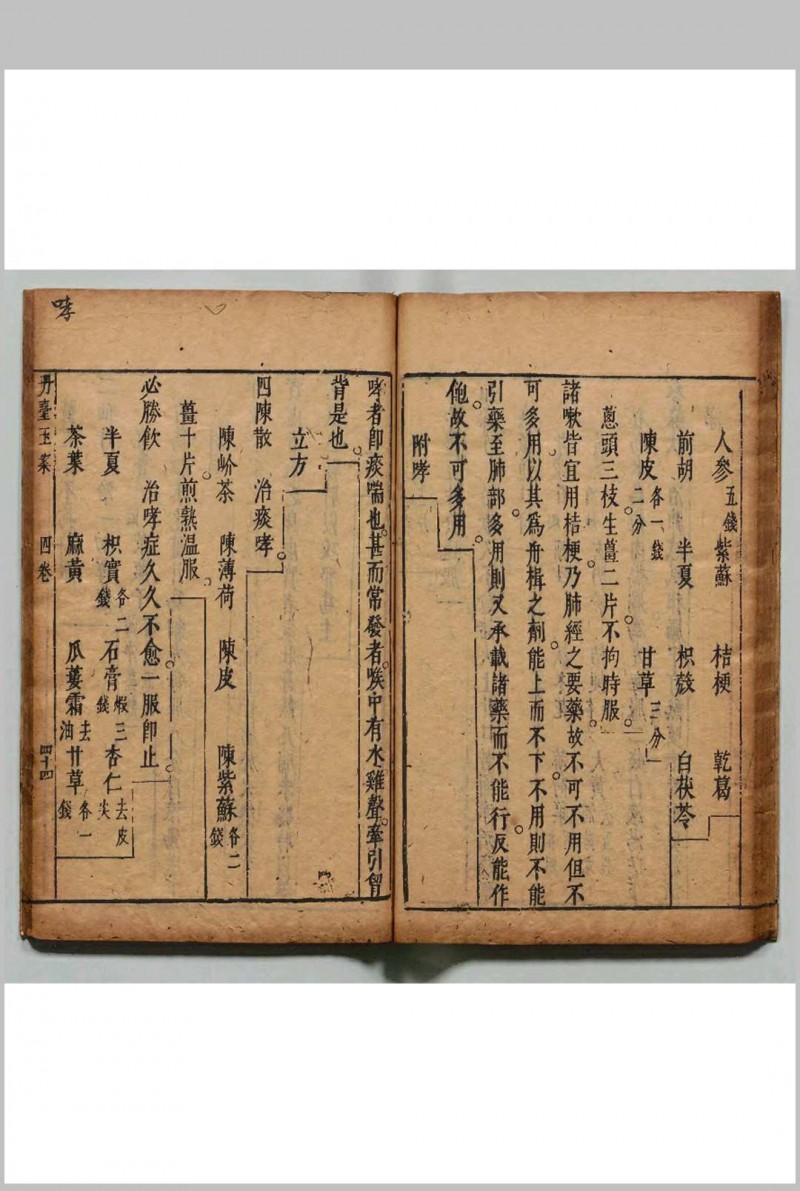 人參五錢 紫蘇 桔梗 乾葛
前胡 半夏 枳殼 白茯苓
陳皏各一錢二分 甘草三分
蔥頭三枝生薑二片不拘時服
諸嗽皆宜用桔梗乃肺經之要藥故不可不用但不
可多用以其為舟楫之劑能上而不下不用則不能
引藥至肺部多用則又承載諸藥而不能行反能作
他故不可多用
附哮
哮者即痰喘也甚而常發者喉中有水雞聲牽引胷
背是也
立方
四陳散 治痰哮
陳岕茶 陳薄荷 陳皮 陳紫蘇各二錢
薑十片煎熟溫服
必勝飲 治哮症久久不愈一服即止
半夏 枳實各二錢 石膏煅三錢 杏仁去皮尖
茶葉 麻黃 瓜蔞霜去油 甘草各一錢
丹臺玉案 四卷 四十四
哮